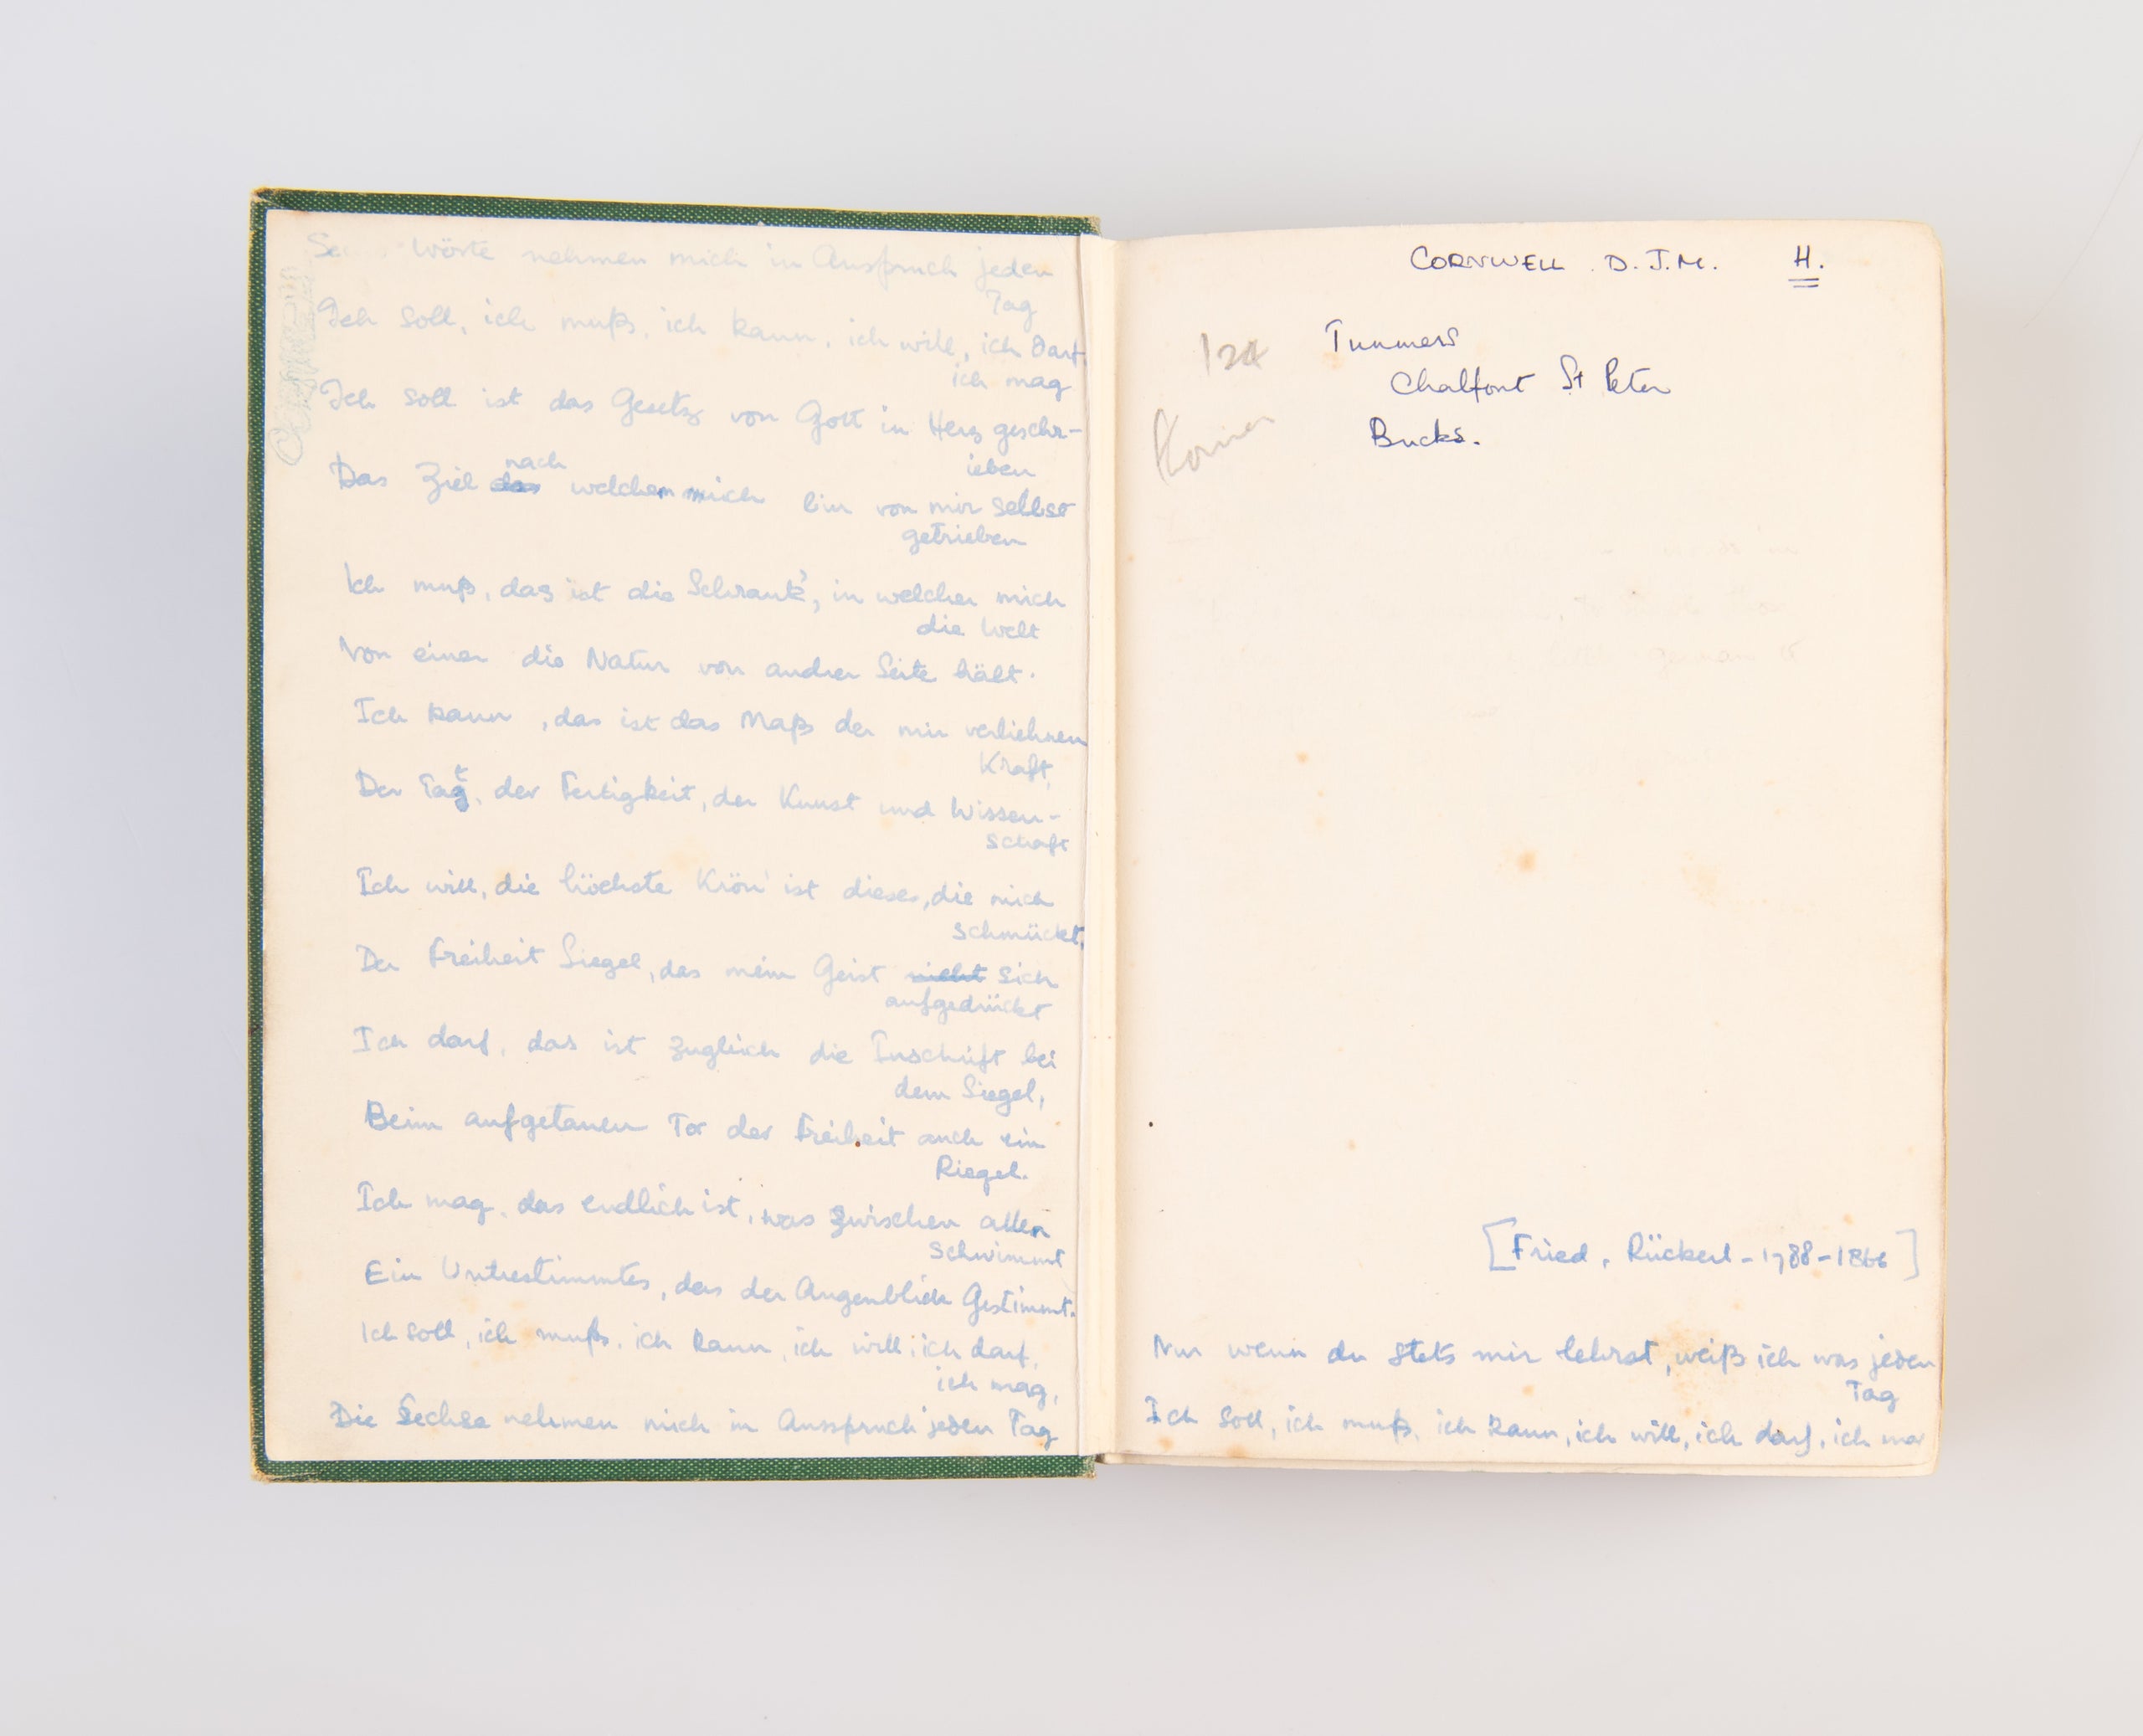 Wörte nehmen mich in Anspruch jeden
Tag
Ich soll, ich muß, ich kann, ich will, ich darf,
ich mag
Ich soll ist das Gesetz von Gott in Herz geschr-
ieben
nach
Das Ziel das welchem mich bin von mir selbst
getrieben
Ich muß, das ist die Schrank', in welcher mich
die Welt
Von einer die Natur von andrer Seite hält.
Ich kann, das ist das Maß der mir verliehnen
Kraft,
Der Tat, der Fertigkeit, der Kunst und Wissen-
schaft
Ich will, die höchste Krön' ist dieses, die mich
schmückt,
Der Freiheit Siegel, das mein Geist nicht sich
aufgedrückt
Ich darf, das ist zugleich die Inschrift bei
dem Siegel,
Beim aufgetanen Tor der Freiheit auch ein
Riegel.
Ich mag, das endlich ist, was zwischen allen
schwimmt
Ein Unbestimmtes, das der Augenblick Gestimmt.
Ich soll, ich muß, ich kann, ich will, ich darf,
ich mag,
Die Sechse nehmen mich in Ansspruch jeden Tag
CORNWELL D.J.M. H.
Tunmers
Chalfont St Peter
Bucks.
[Fried. Rückert - 1788-1866]
Nur wenn du stets mir lehrst, weiß ich was jeden
Tag
Ich soll, ich muß, ich kann, ich will, ich darf, ich mag